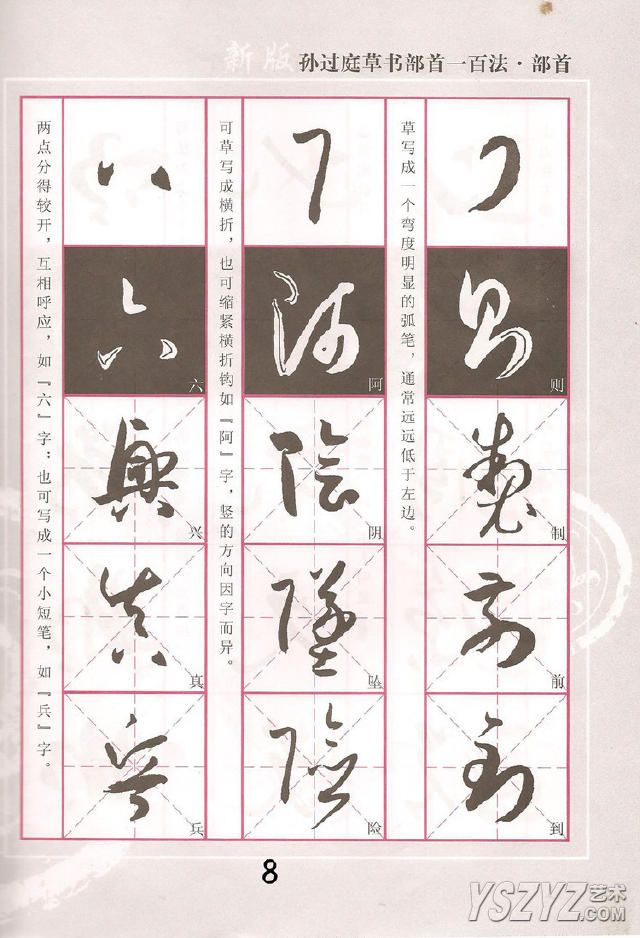 新版 孙过庭草书部首一百法·部首
草写成一个弯度明显的弧笔，通常远远低于左边。
则
制
前
到
可草写成横折，也可缩紧横折钩如『阿』字，竖的方向因字而异。
阿
阴
坠
险
两点分得较开，互相呼应，如『六』字；也可写成一个小短笔，如『兵』字。
六
兴
真
兵
8
YSZYZ艺术
.COM